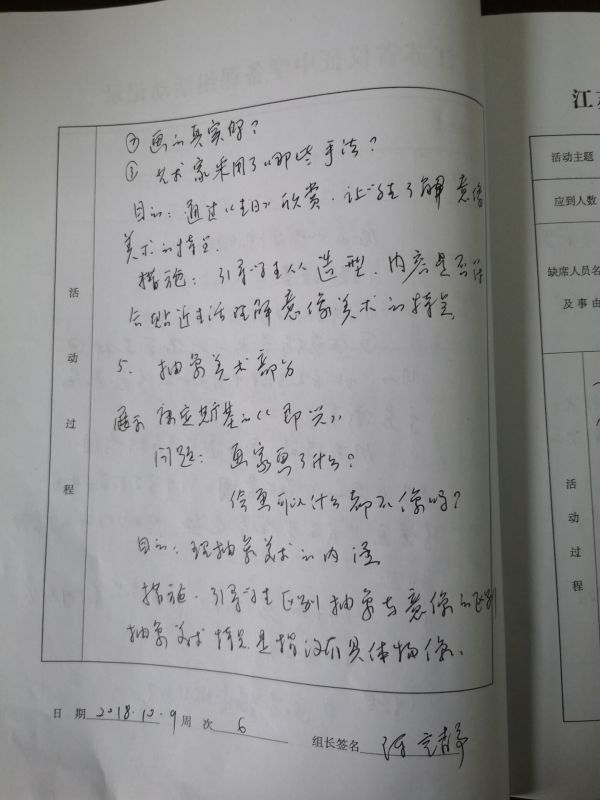 ②画的真实吗?
③艺术家采用了哪些手法?
目的:通过《生日》欣赏,让学生了解意像
美术的特点.
措施:引导学生从造型、内容是否符
合贴近生活理解意像美术的特点
5、抽象美术部分
展示康定斯基的《即兴》
问题:画家画了什么?
绘画可以什么都不像吗?
目的:理抽象美术的内涵
措施:引导学生区别抽象与意像的区别
抽象美术特点是指没有具体物像、
活动过程
日期 2018.10.9 周次 6
组长签名
江
活动主题
应到人数
缺席人员名
及事由
活动过程